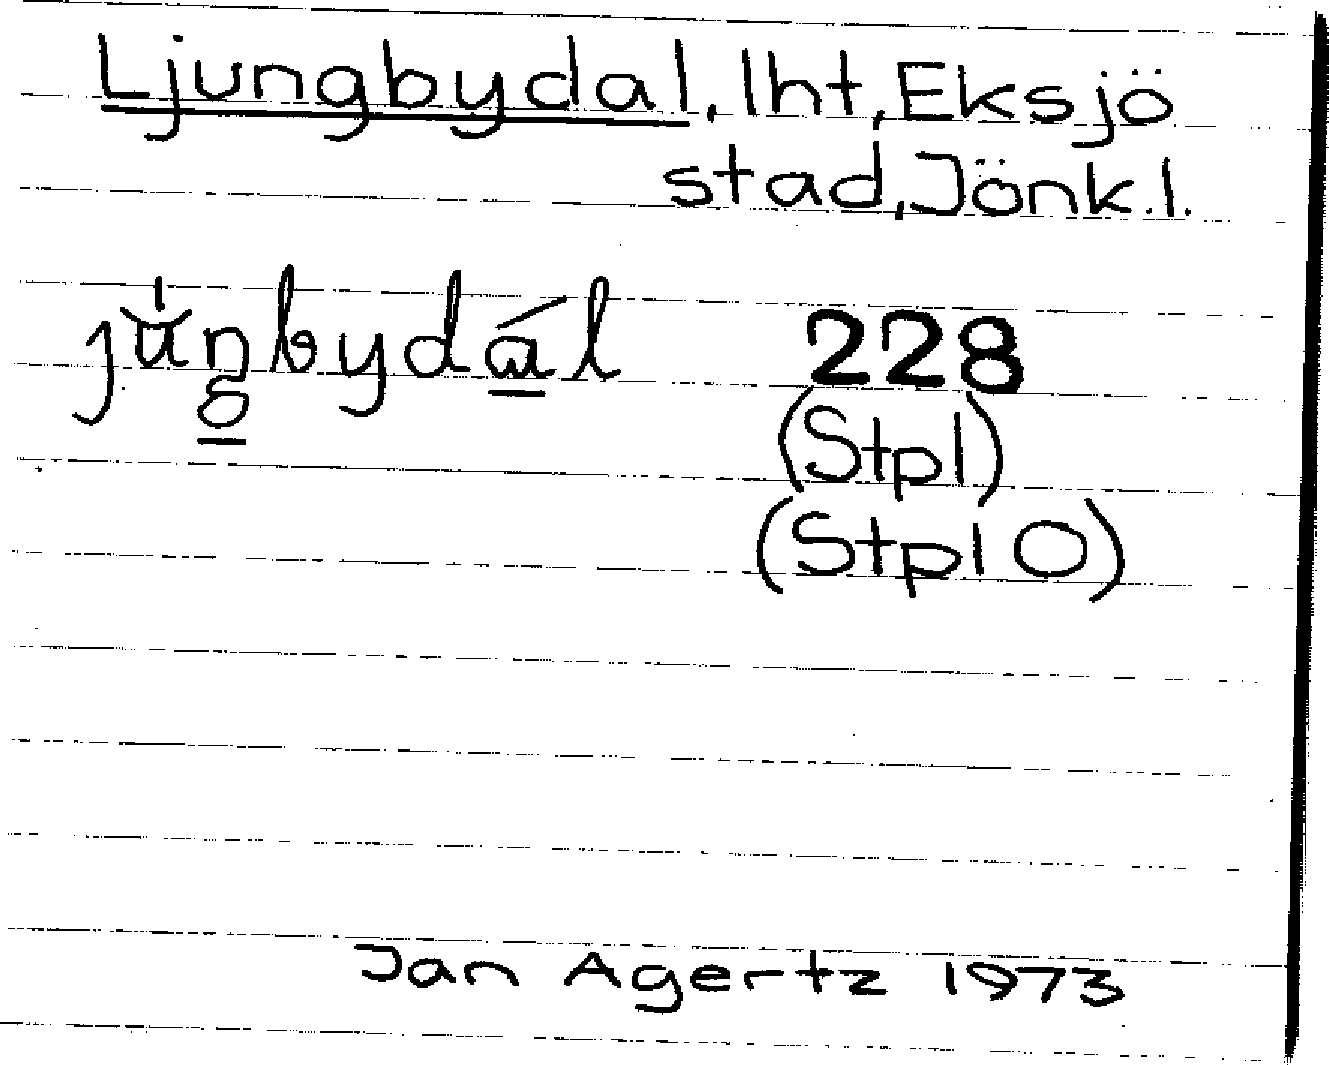 Ljungbydal, lht, Eksjö
stad, Jönk.l.
jŭ̀ngbydál 228
(Stpl)
(Stpl O)
Jan Agertz 1973